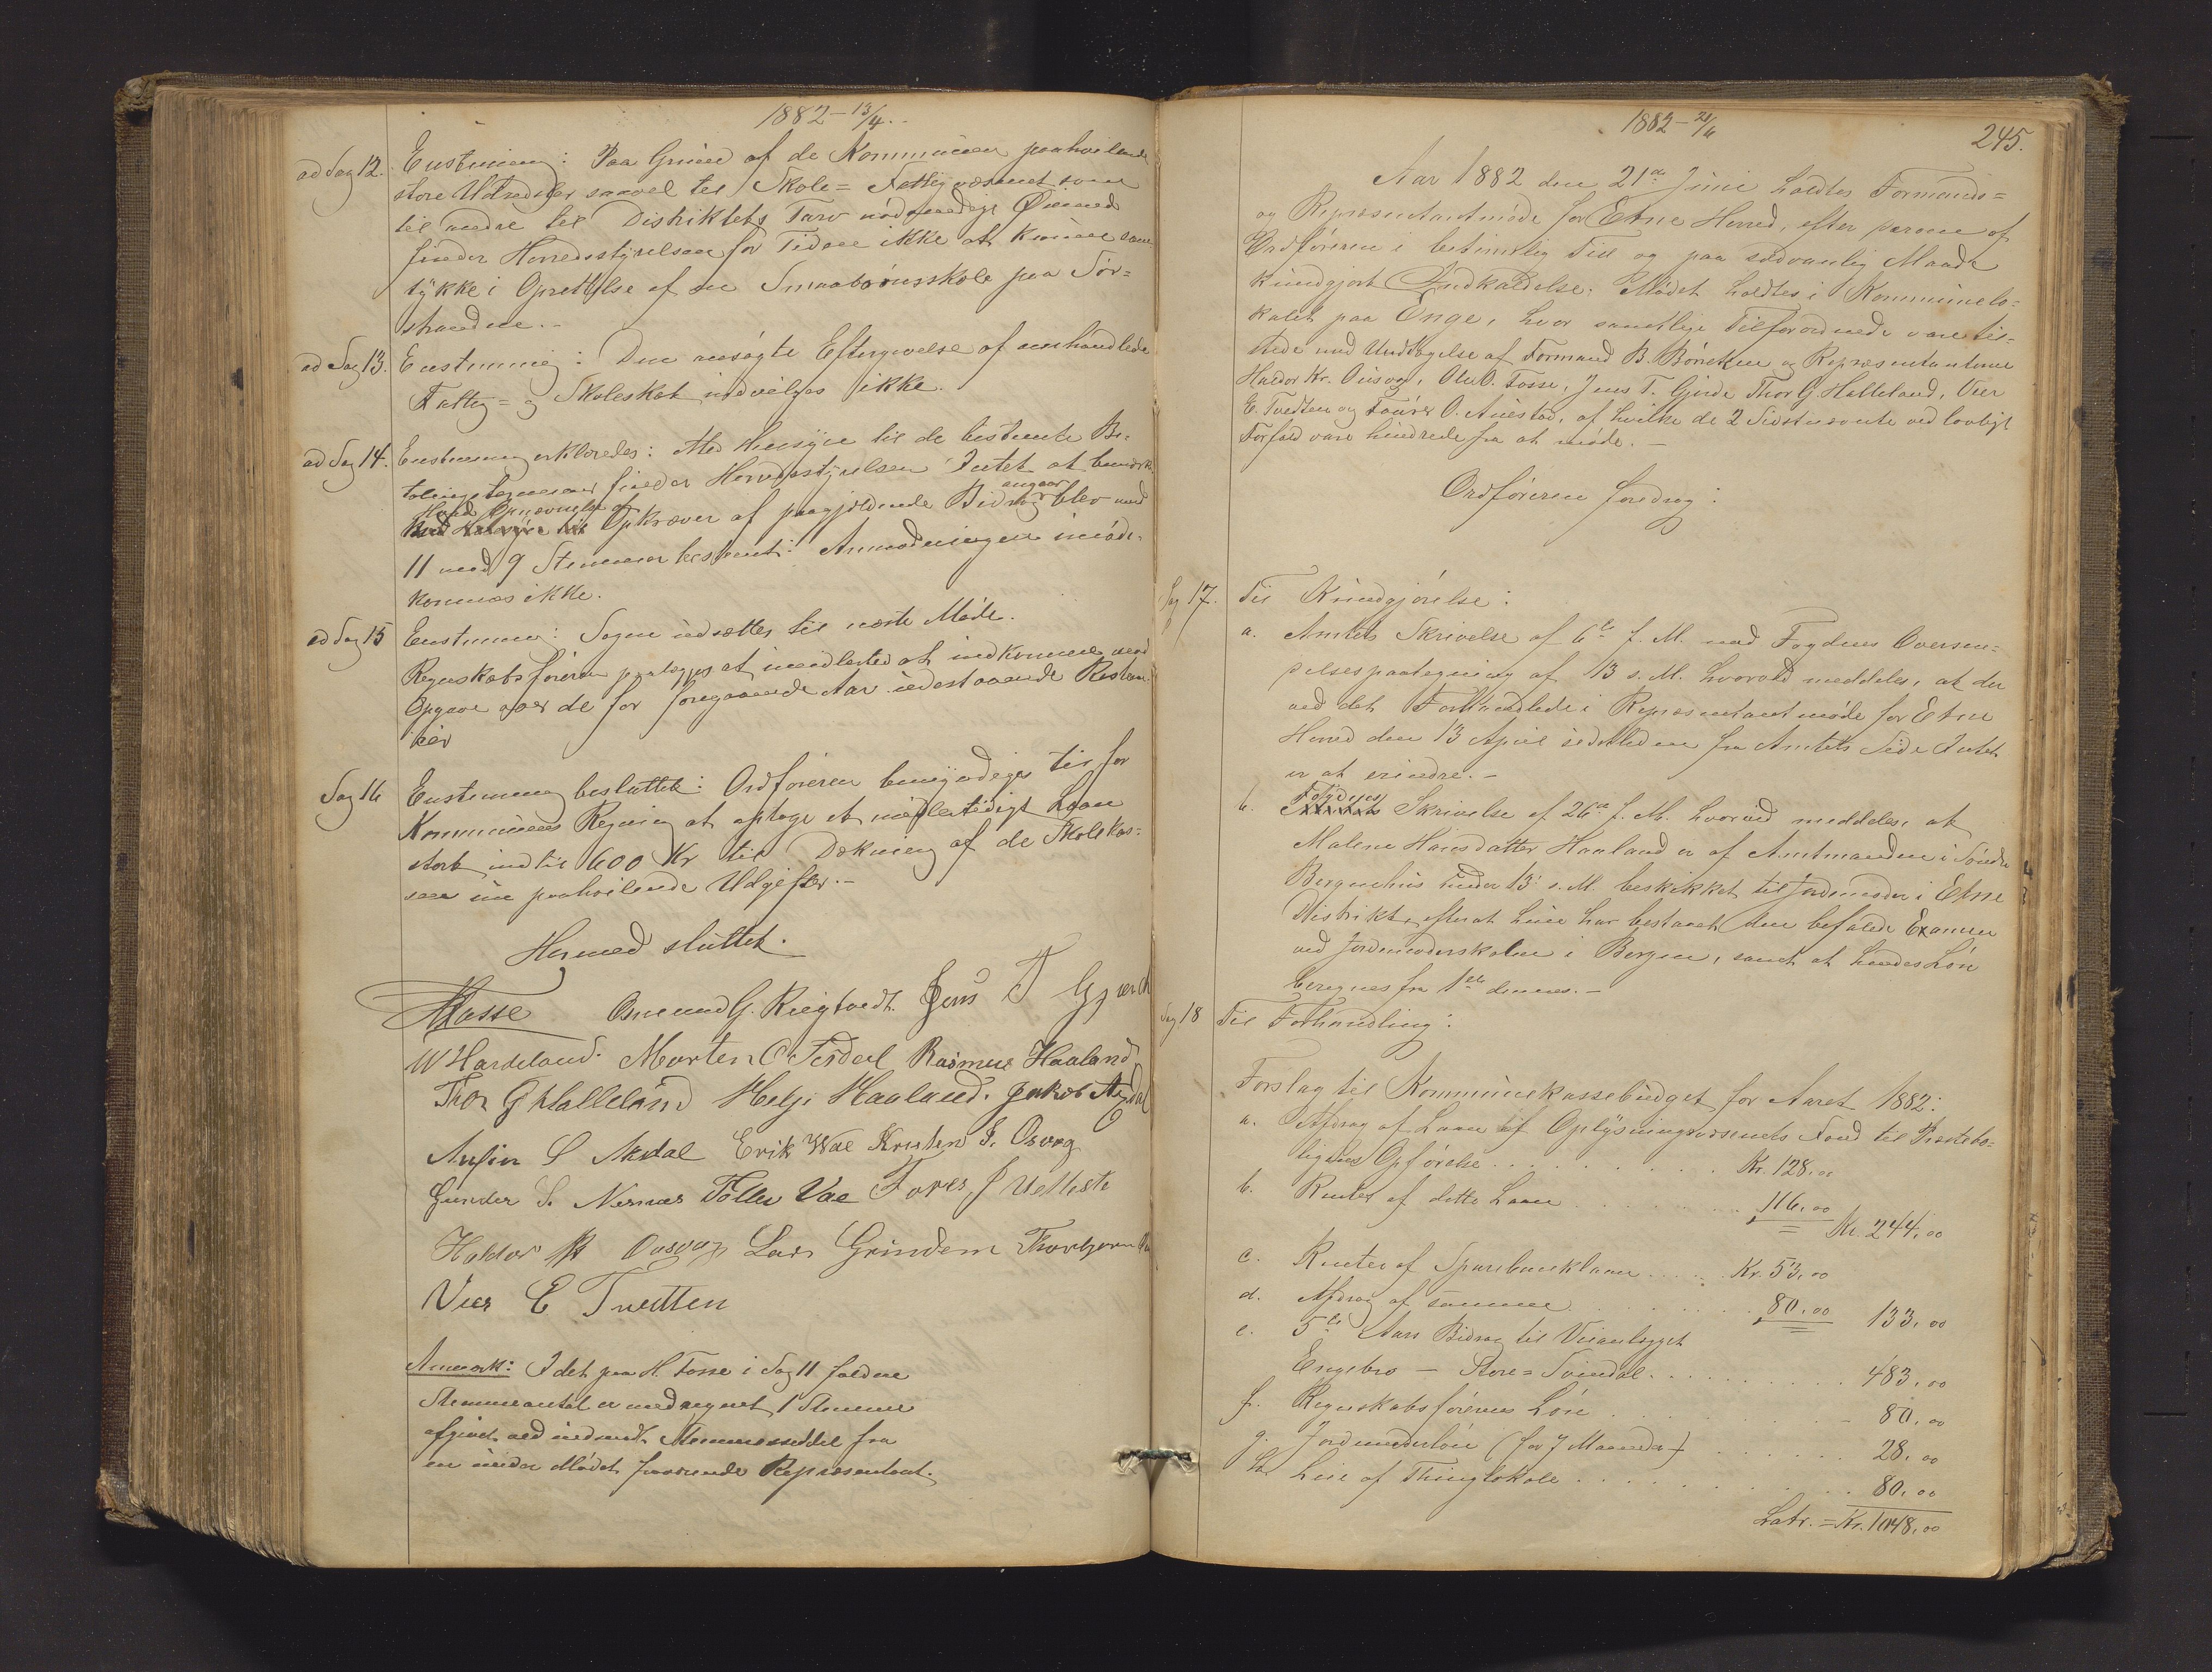 1882 - 13/4.
ad Sag 12. Enstemmig: Paa Grund af de Kommunen paahvilende
store Udredsler saavel til Skole= Fattigvæsenet som
til andre til Distriktets Tarv nødvendige Øiemed
finder Herredsstyrelsen for Tiden ikke at kunne sam
tykke i Oprettelse af en Smaabørnsskole paa Sør=
strandene.-
ad Sag 13. Enstemmig: Den ansøgte Eftergivelse af omhandlede
Fattig= og Skoleskat indvilges ikke.
ad Sag 14. Enstemmig erklæredes: Med Hensyn til de bestemte Be-
talingsterminer finder Herredsstyrelsen Intet at bemærke.
Hvad Opnævnelse af angaar
Med Hensyn til Opkræver af paagjældende Bidrag blev med
11 mod 9 Stemmer bestemt: Anmodningen imøde-
kommes ikke.
ad Sag 15 Enstemmig: Sagen udsættes til næste Møde.
Regnskabsføreren paalægges at imidlertid at indkomme med
Opgave over de for foregaaende Aar udestaaende Restan
cer
Sag 16 Enstemmig besluttet: Ordføreren bemyndiges til for
Kommunens Regning at optage et midlertidigt Laan
stort indtil 600 Kr til Dækning af de Skolekas=
sen nu paahvilende Udgifter.-
Hermed sluttet.
HFosse Osmund G. Rygtvedt. Jens T Gjerde
W Hardeland. Morten O Tesdal Rasmus Haaland
Thor G Halleland Helge Haaland. Jakob Aksdal
Anfin S Akdal Erik Vae Kristen J. Osvag
Gunder S. Nernæs Tøllev Vae Tores J Velleste
Haldor K Ousvog Lars Grindem Thorbjørn
Vier E Tvedten
Anmærk: I det paa H. Fosse i Sag 11 faldne
Stemmeantal er medregnet 1 Stemme
afgivet ved indsendt Stemmeseddel fra
en under Mødet fraværende Repræsentant.
1882 - 21/6
245.
Aar 1882 den 21de Juni holdtes Formands=
og Repræsentantmøde for Etne Herred, efter paa
Ordføreren i betimelig Tid og paa sædvanlig Maade
kundgjort Indkaldelse. Mødet holdtes i Kommunelo=
kalet paa Enge, hvor samtlige Tilforordnede vare til-
stede med Undtagelse af Formand B. Børretzen og Repræsentanterne
Haldor Kr. Ousvog, Ole O. Fosse, Jens T. Gjerde Thor G. Halleland, Vier
E. Tvedten og Tørres O. Austad, af hvilke de 2 Sidstnævnte ved lovligt
Forfald vare hindrede fra at møde.-
Ordføreren foredrog:
Sag 17. Til Kundgjørelse:
a. Amtets Skrivelse af 6te f. M. med Fogdens Oversen=
delsespaategning af 13 s. M. hvorved meddeles, at der
ved det Forhandlede i Repræsentantmøde for Etne
Herred den 13 April sidstleden fra Amtets Side Intet
er at erindre.-
Fogdens
b. Amtets Skrivelse af 26de f. M. hvorved meddeles, at
Malene Hansdatter Haaland er af Amtmanden i Søndre
Bergenhus under 13 s. M. beskikket til Jordmoder i Etne
Distrikt, efterat hun har bestaaet den befalede Examen
ved Jordmoderskolen i Bergen, samt at hendes Løn
beregnes fra 1ste dennes.-
Sag 18 Til Forhandling:
Forslag til Kommunekassebudget for Aaret 1882:
a. Afdrag af Laan af Oplysningsvæsenets Fond til Præstebo=
ligens Opførelse . . . . . . . . . Kr. 128.00
b. Renter af dette Laan . . . . . . . 116.00
Kr. 244.00
c. Renter af Sparebanklaan . . . . Kr. 53.00
d. Afdrag af samme . . . . . . . 80.00 133.00
e. 5te Aars Bidrag til Veianlægget
Engebro - Store=Svindal . . . . . . . . 483.00
f. Regnskabsførerens Løn . . . . . . 80.00
g. Jordmoderløn (for 7 Maaneder) . . . . . 28.00
h. Leie af Thinglokale . . . . . . . . 80.00
Latr. = Kr. 1048.00